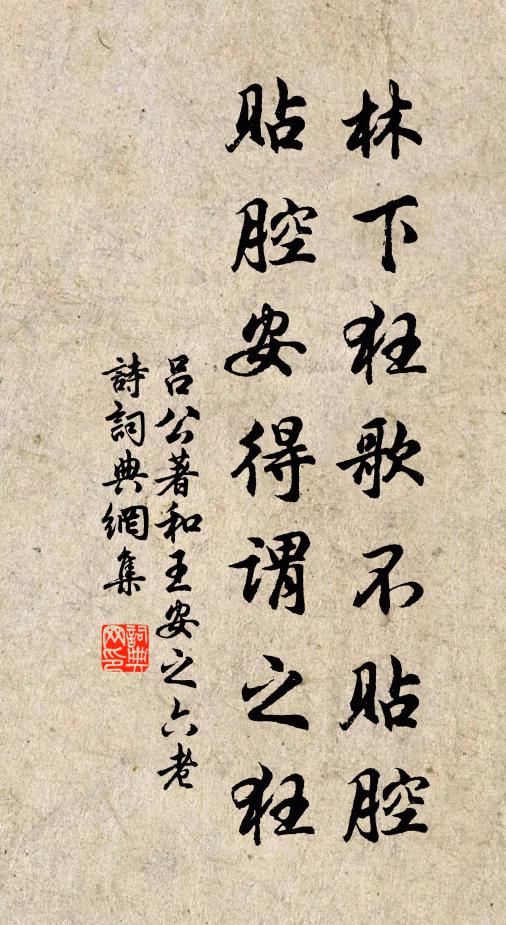 林下狂歌不貼腔
貼腔安得謂之狂
呂公著和王安之六老
詩詞典網集
詞典
网印